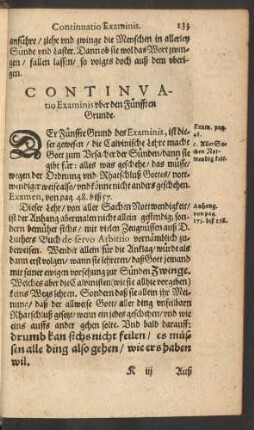 Continuatio Examinis. 133
anführe / ziehe vnd zwinge die Menschen in allerley
Sünde vnd Laster. Dann ob sie wol das Wort zwin-
gen / fallen lassen / so volgts doch auß dem vbri-
gen.
CONTINVA-
tio Examinis vber den Fünfften
Grunde.
DEr Fünffte Grund des Examinis, ist die-
ser gewesen / die Calvinische Lehre macht
Gott zum Vrsacher der Sünden / dann sie
gibt für: alles was geschehe / das müsse /
wegen der Ordnung vnd Rhatschluß Gottes / not-
wendiger weise also / vnd könne nicht anders geschehen.
Examen, von pag. 48. biß 57.
Exam. pag.
48.
1. Aller Sa-
chen Not-
wendig keit.
Dieser Lehr / von aller Sachen Nottwendigkeit /
ist der Anhang abermalen nicht allein geständig; son-
dern bemühet sichs / mit vielen Zeugnissen auß D.
Luthers Buch de servo Arbitrio vernünlich zu-
beweisen. Wendet allein für die Antlag / würde als-
dann erst bewiesen / wann sie lehreten / daß Gott jemand
mit seiner ewigen vorsehung zur Sünden Zwinge.
Anhang.
von pag.
175. biß 178.
Welches aber die Calvinisten (wie sie allhie vorgeben)
keins Wegs lehren. Sondern daß sie allein jhr Mei-
nung / daß der allweise Gott aller ding vnfelbarn
Rhatschluß gesetzt / wann ein jedes geschehen / vnd wie
eins auffs ander gehen solte. Vnd bald darauff:
drumb kan sichs nicht feilen / es müs-
sen alle ding also gehen / wie ers haben
wil.
K iij Auß